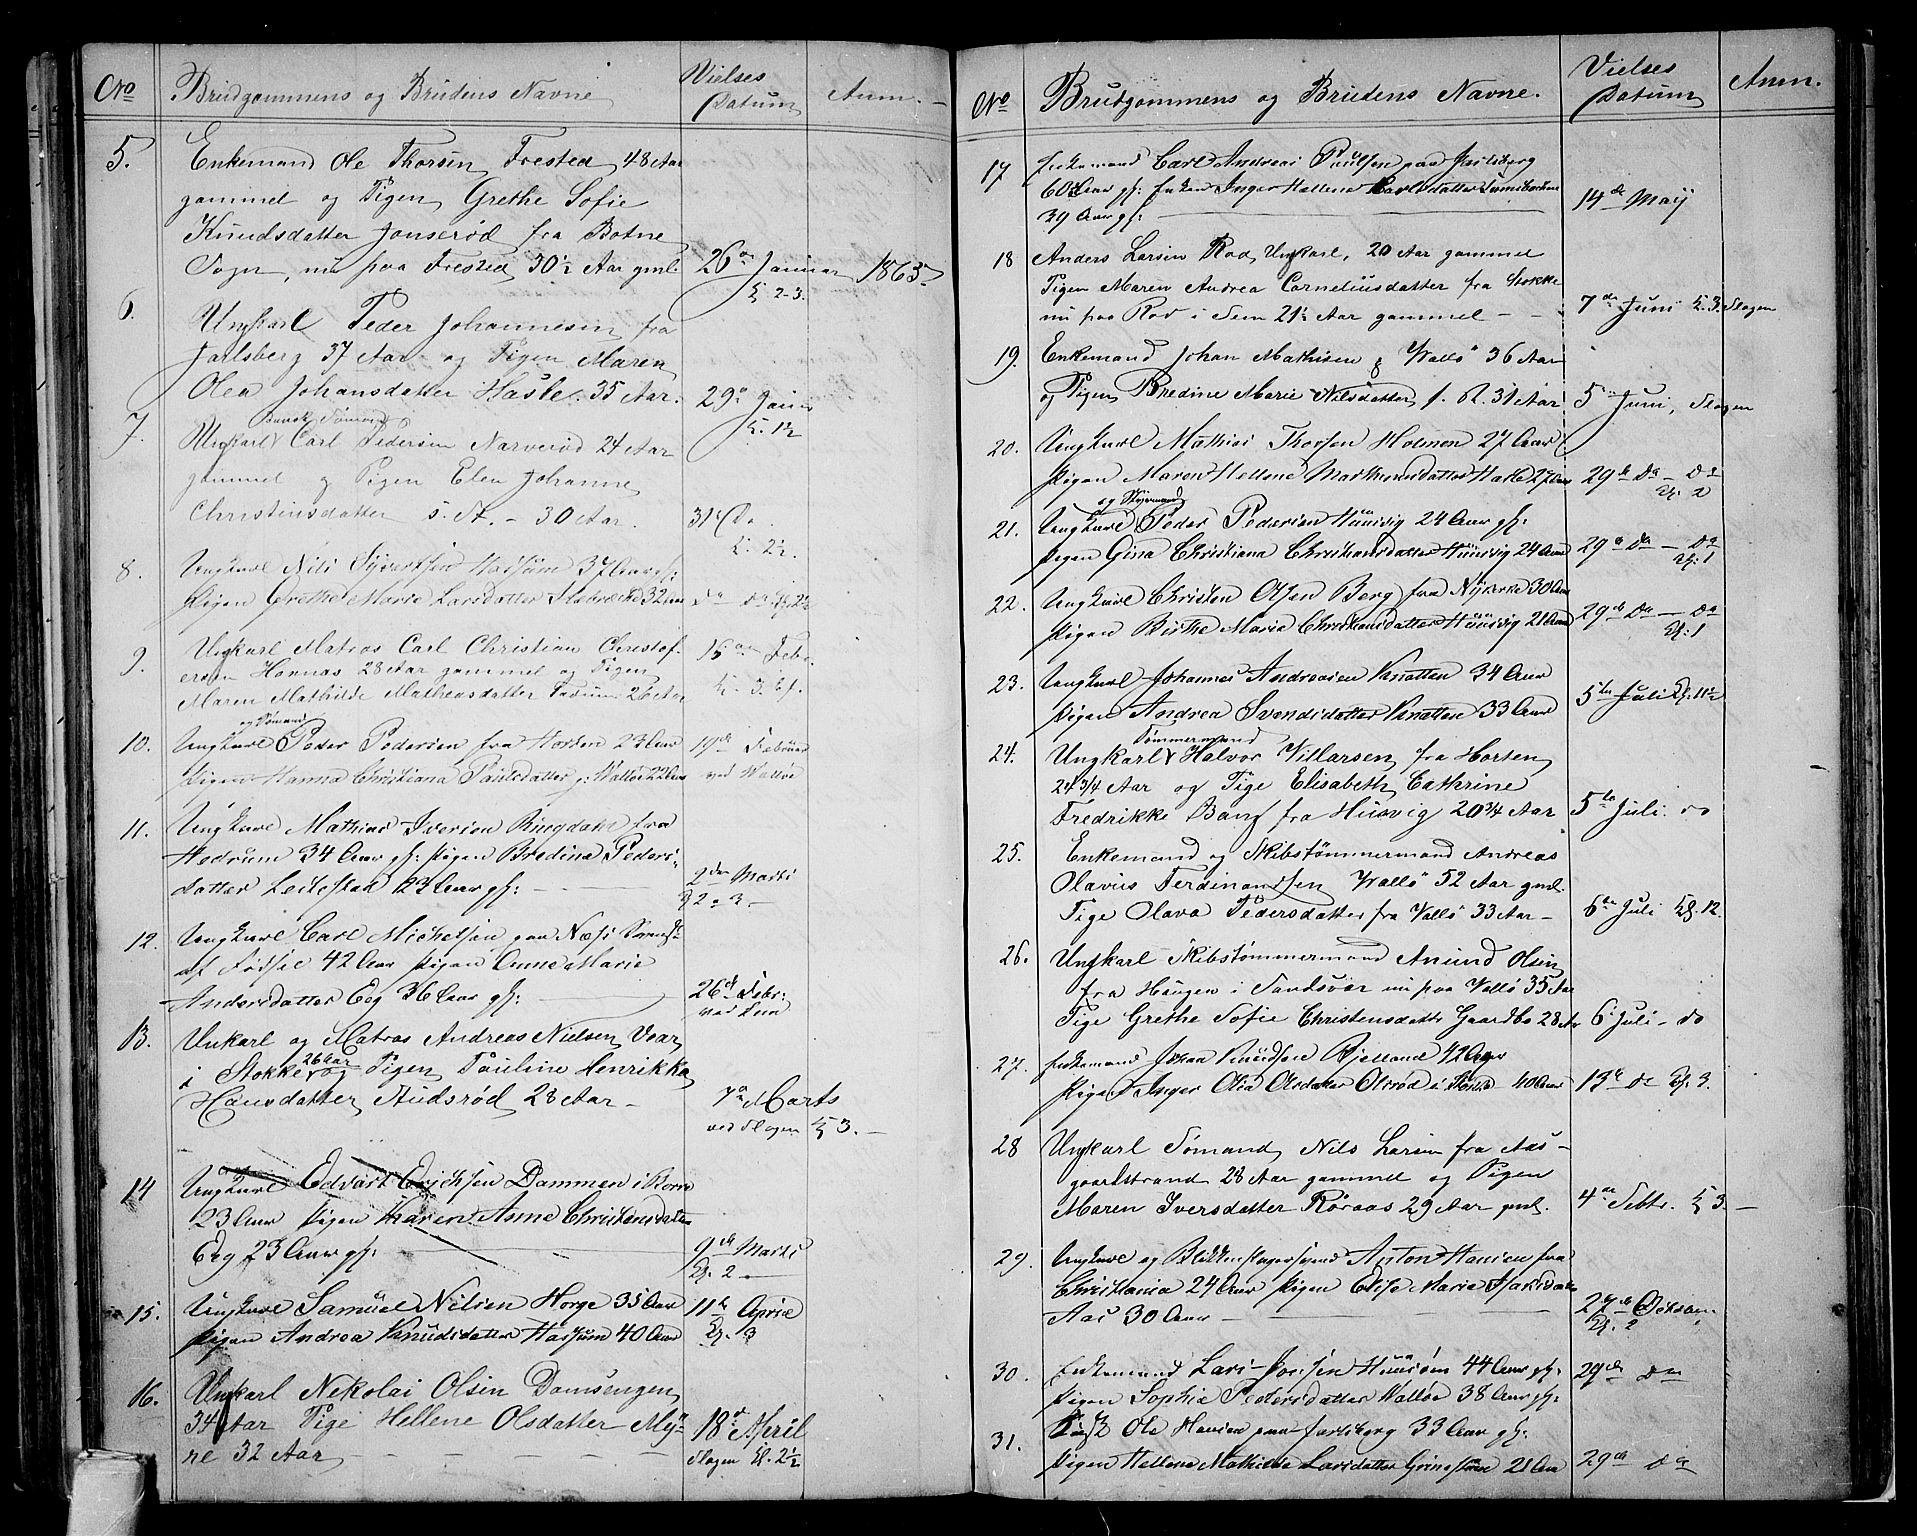 No Brudgommens og Brudens Navne Vielses Datum Anm.
5. Enkemand Ole Thorsen Frested 48 Aar
gammel og Pigen Grethe Sofie
Knudsdatter Jonserød fra Botne
Sogn, nu paa Frested 30½ Aar gml. 26de Januar 1863.
Kl. 2-3.
6. Ungkarl Peder Johannesen fra
Jarlsberg 37 Aar og Pigen Maren
Olea Johansdatter Hasle. 35 Aar. 29de Januar
Kl. 1½
7. Ungkarl Carl Pedersen Narverød 24 Aar
gammel og Pigen Elen Johanne
Christensdatter s. St. - 30 Aar. 31te Do.
Kl. 2½.
8. Ungkarl Nils Syvertsen Hassum 37 Aar gl:
Pigen Grethe Marie Larsdatter 32 Aar do do Kl. 2½
9. Ungkarl Matros Carl Christian Christof-
ersen Hannas 28 Aar gammel og Pigen
Maren Mathilde Mathensdatter 26 Aar 15de Febr.
Kl. 3. Ef.
og Sømand
10. Ungkarl Peder Pedersen fra Horten 23 Aar 19de Februar
Pigen Hanna Christiana Paulsdatter p: Walløe 22 Aar ved Walløe
11. Ungkarl Mathias Iversen Ringdahl fra
Hedrum 34 Aar gl: Pigen Bredina Peders-
datter 23 Aar gl: 2den Marts
Kl 2 a 3.
12. Ungkarl Carl Michelsen paa Næss Svensk
af Fødsel 42 Aar Pigen Anne Marie
Andersdatter Eeg 36 Aar gl: 26de Febr:
ved Sem
13. Unkarl og Matros Andreas Nielsen Voar
26 Aar
i Stokke og Pigen Pauline Henrikke
Hansdatter Audsrød 28 Aar - 7de Marts
ved Slagen Kl 3. -
14 Ungkarl Edvart Erichsen Dammen i Borre
23 Aar Pigen Karen Anne Christiansdatter
Eeg 23 Aar gl: 9de Marts
Kl. 2
15. Ungkarl Samuel Nilsen Horge 35 Aar 11te April
Pigen Andrea Knudsdatter Hassum 40 Aar Kl. 3
16. Unkarl Nekolai Olsen Damsengen
34 Aar Pige Hellene Olsdatter My-
re 32 Aar 18de April
Slagen Kl. 2½
No Brudgommens og Brudens Navne. Vielses Datum Anm.
17 Enkemand Carl Andreas Paulsen paa Jarlsberg
60 Aar gl: Enken Inger Hellene Carlsdatter
39 Aar gl: 14de May
18 Anders Larsen Rod, Unkarl, 20 Aar gammel
Pigen Maren Andrea Corneliusdatter fra Stokke
nu paa Rod i Sem 21½ Aar gammel - - 7de Juni Kl. 3. Slagen
19. Enkemand Johan Mathisen Wallø 36 Aar
og Pigen Bredine Marie Nilsdatter s. St. 31 Aar 5 Juni, Slagen
20. Ungkarl Mathias Thorsen Holmen 27 Aar
Pigen Maren Hellene Mathensdatter 27 Aar 29de Do - Do
Kl. 2
og Styrmand
21. Ungkarl Peder Pedersen Huusvig 24 Aar gl:
Pigen Gina Christiana Christiansdatter Huusvig 24 Aar 29de Do - Do
Kl. 1
22. Ungkarl Christen Olsen Berg fra Nykirke 30 Aar
Pigen Birthe Maria Christiansdatter Huusvig 21 Aar 29de Do - Do
Kl: 1
23. Ungkarl Johannes Andreasen Knatten 34 Aar
Pigen Andrea Svendsdatter Knatten 33 Aar 5te Juli Kl. 11½
Tømmermand
24. Ungkarl Halvor Villarsen fra Horten
24¾ Aar og Pige Elisabeth Cathrine
Fredrikke Bang fra Husvig 20¾ Aar 5te Juli do
25. Enkemand og Skibstømmermand Andreas
Olavus Ferdinandsen Wallø 52 Aar gml.
Pige Olava Pedersdatter fra Vallø 33 Aar - 6te Juli Kl. 12.
26. Ungkarl Skibstømmermand Anund Olsen
fra Haugen i Sandsvær nu paa Vallø 35 Aar
Pige Grethe Sofie Christensdatter Gaardbo 28 Ar 6 Juli - do
27. Enkemand Johan Knudsen Bjelland 42 Aar
Pigen Inger Olea Olsdatter Olsrød i Sem 40 Aar 13de do Kl. 3.
28 Ungkarl Sømand Nils Larsen fra Aas-
gaardstrand 28 Aar gammel og Pigen
Maren Iversdatter Røraas 29 Aar gml. 4de Sebtr. Kl 3. -
29. Ungkarl og Blikkenslagersvend Anton Hansen fra
Christiania 24 Aar Pigen Elise Marie
Aas 30 Aar 27de October
Kl. 2
30. Enkemand Lars Huusøen 44 Aar gl:
Pigen Sophie Pedersdatter Walløe 38 Aar gl: 29de Do
31. Ole Hansen paa Jarlsberg 33 Aar gl:
Pigen Hellene Mathilde Larsdatter 21 Aar 29de Do